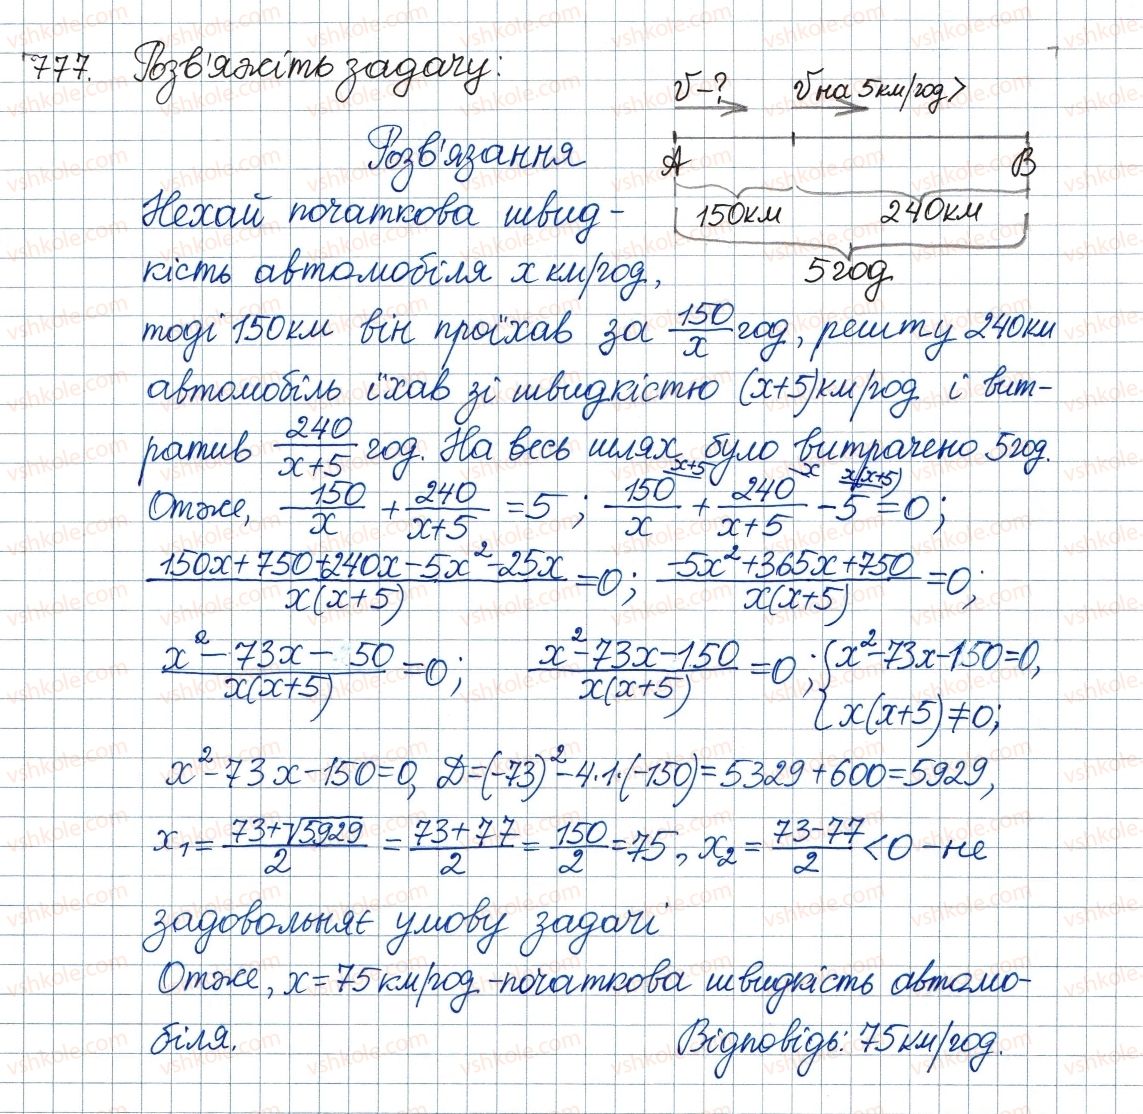 777. Розв'яжіть задачу:
V-? Vна 5км/год>
Розв'язання
A B
Нехай початкова швид-
150км 240км
кість автомобіля x км/год,
5год
тоді 150км він проїхав за 150/x год, решту 240км
автомобіль їхав зі швидкістю (x+5)км/год і вит-
ратив 240/(x+5) год. На весь шлях було витрачено 5год.
Отже, 150/x + 240/(x+5) = 5; 150/x ^(x+5) + 240/(x+5) ^x - 5 ^(x(x+5)) = 0;
(150x+750+240x-5x²-25x)/(x(x+5)) = 0; (-5x²+365x+750)/(x(x+5)) = 0;
(x²-73x- 50)/(x(x+5)) = 0; (x²-73x-150)/(x(x+5)) = 0; { x²-73x-150=0,
x(x+5)≠0;
x²-73x-150=0, D=(-73)²-4·1·(-150)=5329+600=5929,
x₁ = (73+√5929)/2 = (73+77)/2 = 150/2 = 75, x₂ = (73-77)/2 <0 - не
задовольняє умову задачі
Отже, x=75км/год - початкова швидкість автомо-
біля. Відповідь: 75км/год.
vshkole.com